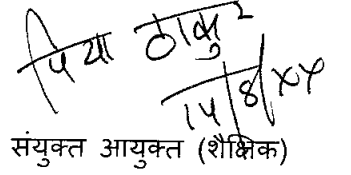 प्रिया ठाकुर
14/8/xx
संयुक्त आयुक्त (शैक्षिक)